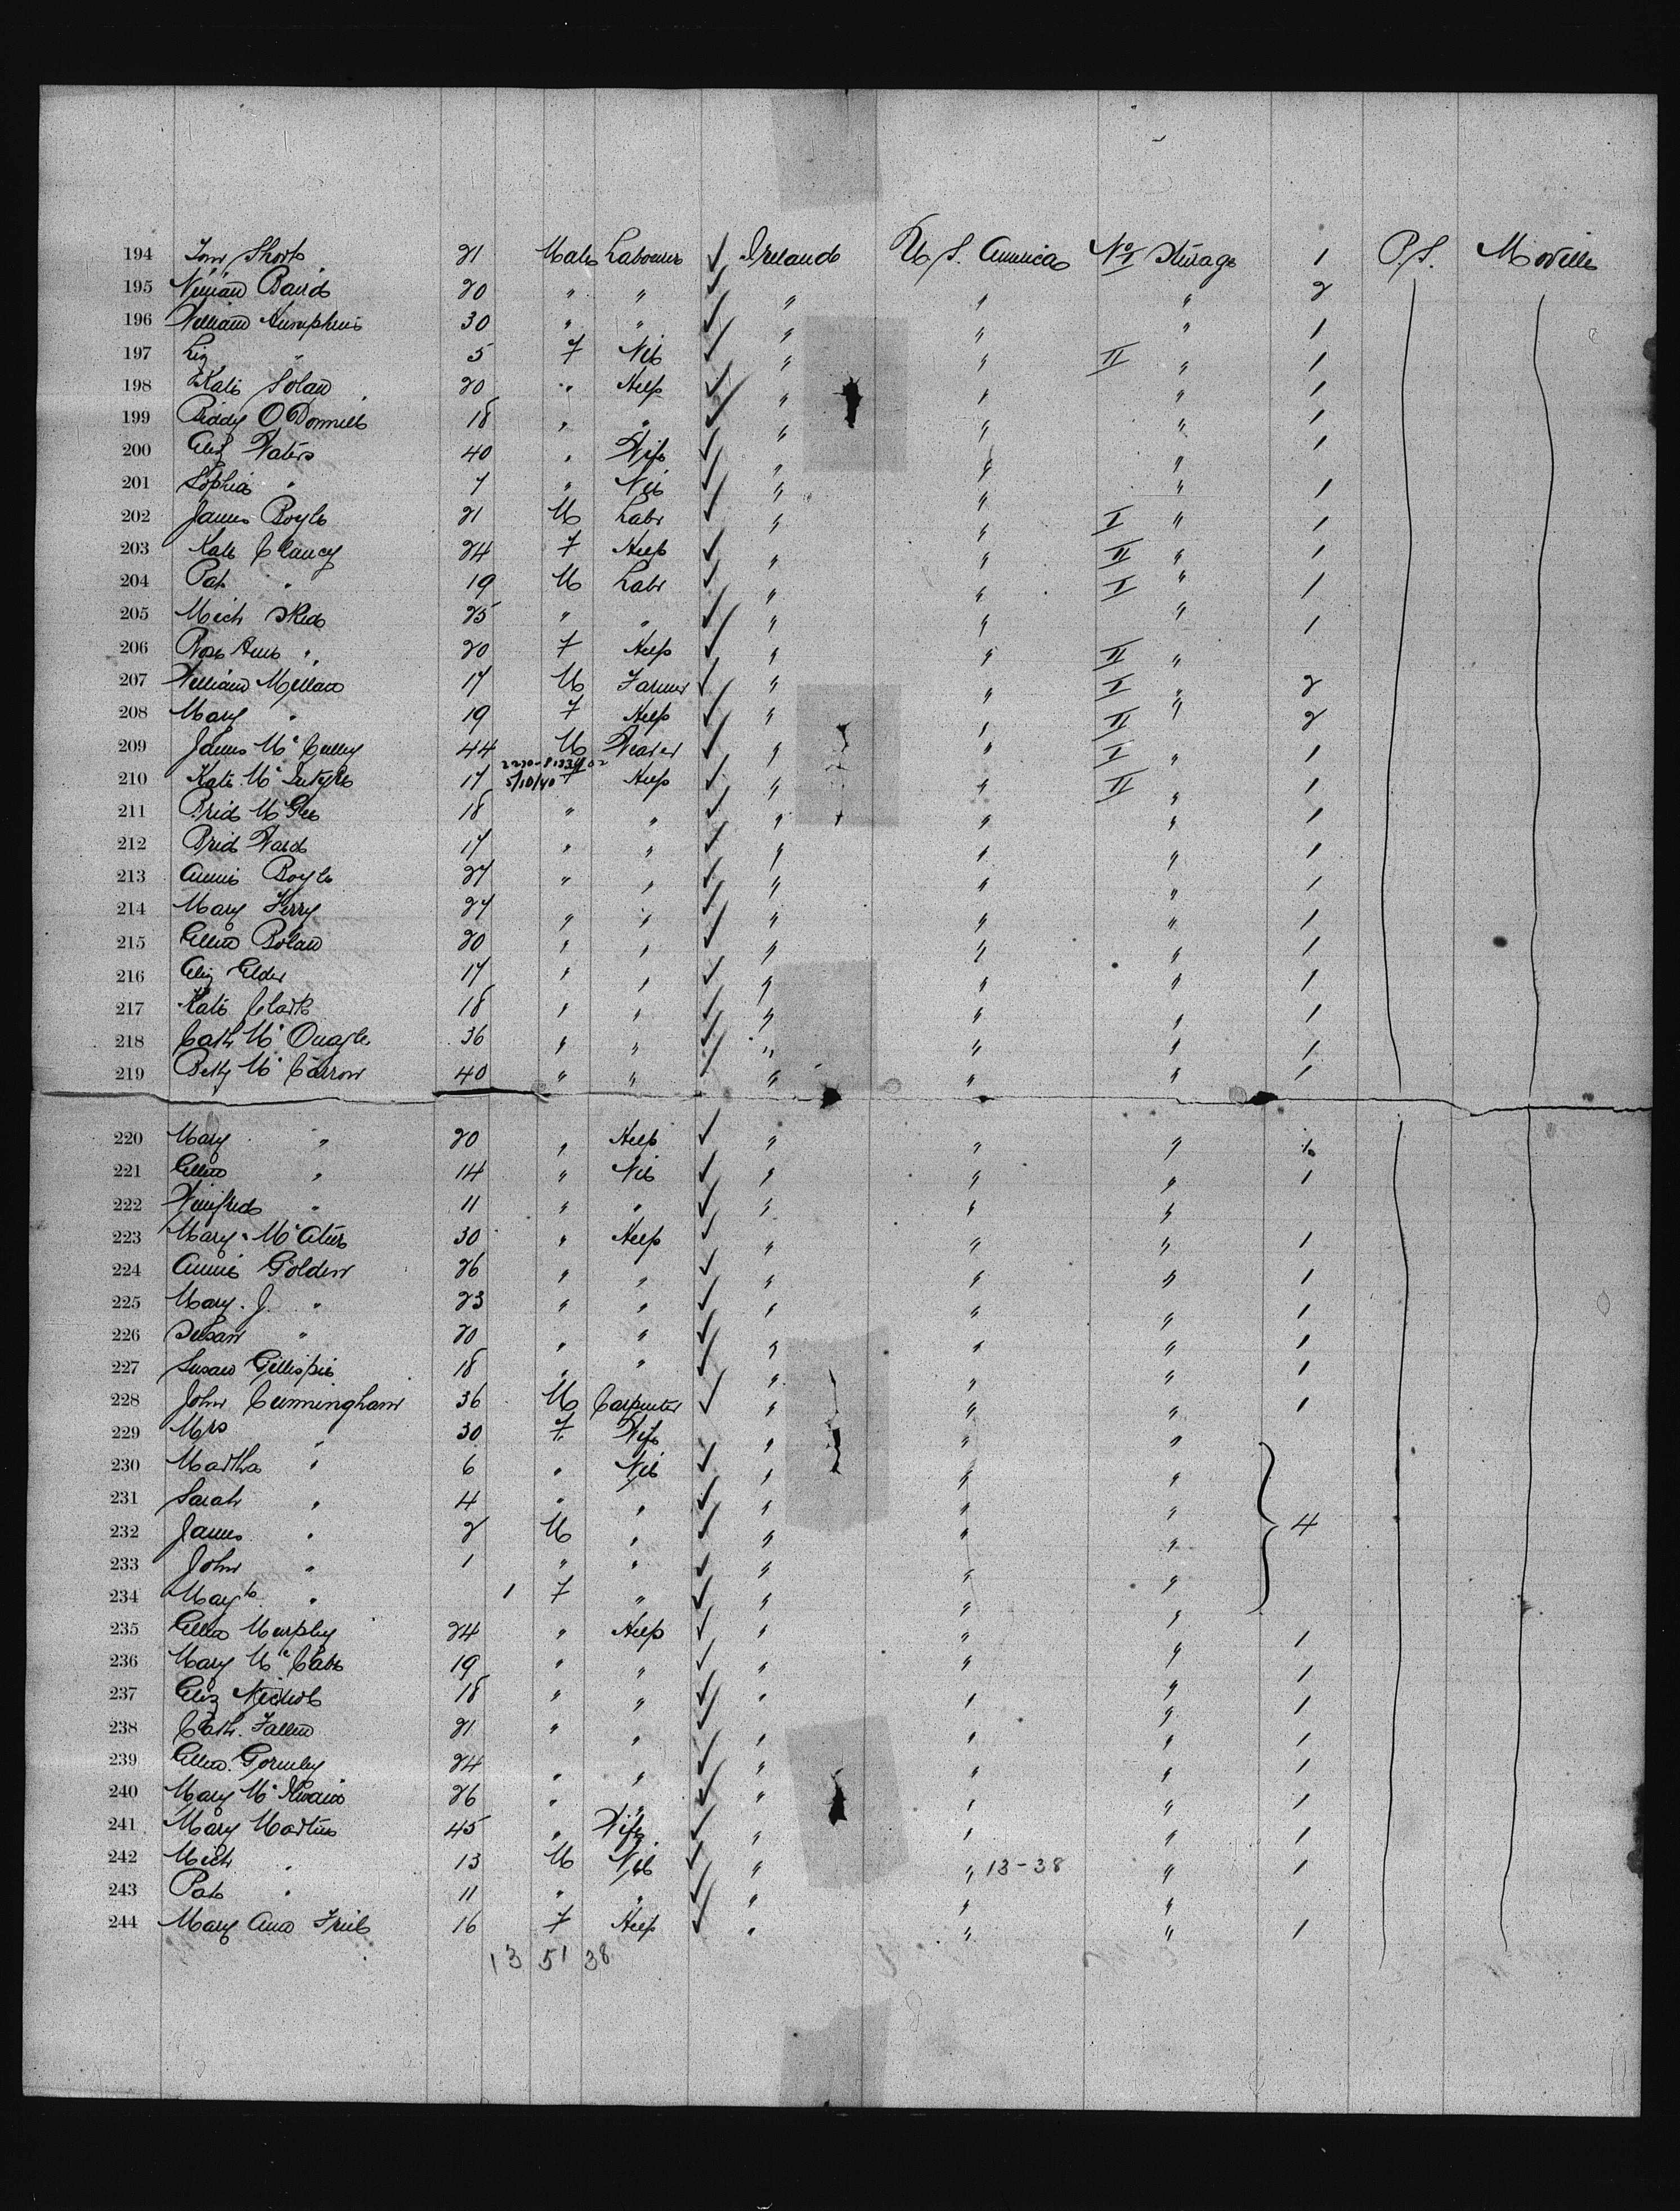 194 Tom Short 21 Male Labourer ✓ Ireland U.S. America No I Steerage 1 P.S. Moville
195 Ninian Baird 20 " " ✓ " " " 2
196 William Humphries 30 " " ✓ " " " 1
197 Liz " 5 F Nil ✓ " " II " 1
198 Kate Solan 20 " Help ✓ " " " 1
199 Biddy O'Donnell 18 " " ✓ " " " 1
200 Eliz Waters 40 " Wife ✓ " " " 1
201 Sophia " 7 " Nil ✓ " " " 1
202 James Boyle 21 M Labr ✓ " " I " 1
203 Kate Clancy 24 F Help ✓ " " II " 1
204 Pat " 19 M Labr ✓ " " I " 1
205 Mich 25 " " ✓ " " " 1
206 Rose Ann " 20 F Help ✓ " " II "
207 William Millar 17 M Farmer ✓ " " I " 2
208 Mary " 19 F Help ✓ " " II " 2
209 James Mc 44 M Weaver ✓ " " I " 1
210 Kate McIntyre 17 5/10/40 F Help ✓ " " II " 1
211 Brid McGee 18 " " ✓ " " " 1
212 Brid Ward 17 " " ✓ " " " 1
213 Annie Boyle 27 " " ✓ " " " 1
214 Mary Ferry 27 " " ✓ " " " 1
215 Ellen Bolan 20 " " ✓ " " " 1
216 Eliz Elder 17 " " ✓ " " " 1
217 Kate Clark 18 " " ✓ " " " 1
218 Cath Mc 36 " " ✓ " " " 1
219 Betty McCarron 40 " " ✓ " " " 1
220 Mary " 20 " Help ✓ " " " 1
221 Ellen " 14 " Nil ✓ " " " 1
222 Winifred " 11 " " ✓ " " "
223 Mary McAteer 30 " Help ✓ " " " 1
224 Annie Golden 26 " " ✓ " " " 1
225 Mary J. " 23 " " ✓ " " " 1
226 Susan " 20 " " ✓ " " " 1
227 Susan Gillespie 18 " " ✓ " " " 1
228 John Cunningham 36 M Carpenter ✓ " " " 1
229 Mrs " 30 F Wife ✓ " " "
230 Martha " 6 " Nil ✓ " " "
231 Sarah " 4 " " ✓ " " "
232 James " 2 M " ✓ " " " 4
233 John " 1 " " ✓ " " "
234 Magt " 1 F " ✓ " " "
235 Ellen Murphy 24 " Help ✓ " " " 1
236 Mary McCabe 19 " " ✓ " " " 1
237 Eliz Nichol 18 " " ✓ " " " 1
238 Cath. Fallen 21 " " ✓ " " " 1
239 Ellen Gormley 24 " " ✓ " " " 1
240 Mary McIlwain 26 " " ✓ " " " 1
241 Mary Martin 45 " Wife ✓ " " " 1
242 Mich " 13 M Nil ✓ " " 13-38 " 1
243 Pat " 11 " " ✓ " " "
244 Mary Ann Friel 16 F Help ✓ " " " 1
13 51 38